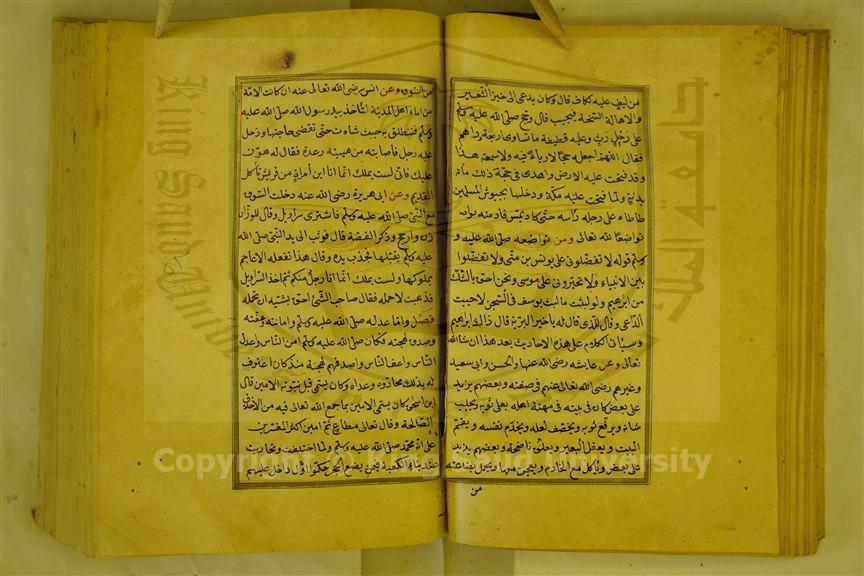 من ليف عليه اكاف قال وكان يدعى الى خبز الشعير
والاهالة السنخة فيجيب قال وحج صلى الله عليه وسلم
على رحل رث وعليه قطيفة ما تساوى اربعة دراهم
فقال اللهم اجعله حجا لا رياء فيه ولا سمعة هذا
وقد فتحت عليه الارض واهدى في حجه ذلك مائة
بدنة ولما فتحت عليه مكة ودخلها بجيوش المسلمين
طاطاء على رحله راسه حتى كاد يمس قادمته
تواضعا لله تعالى ومن تواضعه صلى الله عليه و
سلم قوله لا تفضلوني على يونس بن متى ولا تفضلوا
بين الانبياء ولا تخيروني على موسى ونحن احق بالشك
من ابراهيم ولو لبثت ما لبث يوسف في السجن لاجبت
الداعى وقال للذى قال له يا خير البرية قال ذاك ابراهيم
وسياتى الكلام على هذه الاحاديث بعد هذا ان شاء الله
تعالى وعن عايشة رضى الله عنها والحسن وابى سعيد
وغيرهم رضى الله تعالى عنهم في صفته وبعضهم يزيد
على بعض كان في بيته في مهنة اهله يفلى ثوبه ويحلب
شاته ويرقع ثوبه ويخصف نعله ويخدم نفسه ويقم
البيت ويعقل البعير ويعلف ناضحه وبعضهم يزيد
على بعض وياكل مع الخادم ويعجن معها ويحمل بضاعته
من
من السوق وعن انس رضى الله تعالى عنه ان كانت الامة
من اماء اهل المدينة لتاخذ بيد رسول الله صلى الله عليه
وسلم فتنطلق به حيث شاءت حتى تقضى حاجتها ودخل
عليه رجل فاصابته من هيبته رعدة فقال له هون
عليك فانى لست بملك انما انا ابن امراة من قريش تاكل
القديد وعن ابى هريرة رضى الله عنه دخلت السوق
مع النبى صلى الله عليه وسلم فاشترى سراويل وقال للوزان
زن وارجح وذكر القصة قال فوثب الى يد النبى صلى الله
عليه وسلم يقبلها فجذب يده وقال هذا تفعله الاعاجم
بملوكها ولست بملك انما انا رجل منكم ثم اخذ السراويل
فذهبت لاحمله فقال صاحب الشئ احق بشيئه ان يحمله
فصل واما عدله صلى الله عليه وسلم وامانته وعفته
وصدق لهجته فكان صلى الله عليه وسلم امن الناس واعدل
الناس واعف الناس واصدقهم لهجة منذ كان اعترف
له بذلك محادوه وعداه وكان يسمى قبل نبوته الامين قال
ابن اسحق كان يسمى الامين بما جمع الله تعالى فيه من الاخلاق
الصالحة وقال تعالى مطاع ثم امين اكثر المفسرين
على انه محمد صلى الله عليه وسلم ولما اختلفت قريش وتحازبت
عند بناء الكعبة فيمن يضع الحجر حكموا اول داخل عليهم
King Saud University
جامعة الملك
Copyright © King Saud University